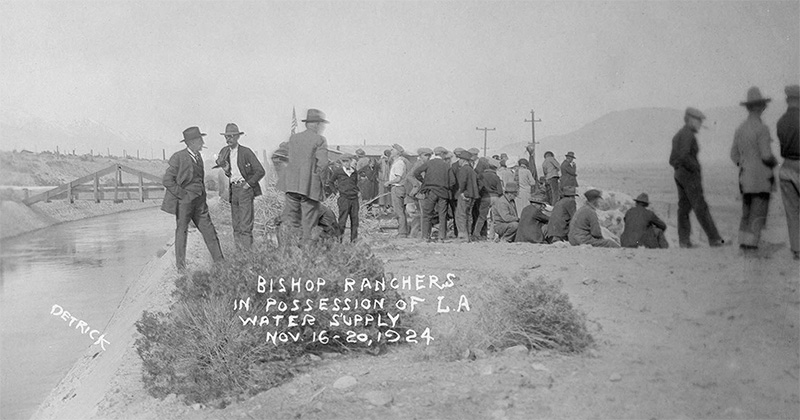 BISHOP RANCHERS
IN POSSESSION OF L.A
WATER SUPPLY
NOV. 16-20, 1924
DETRICK